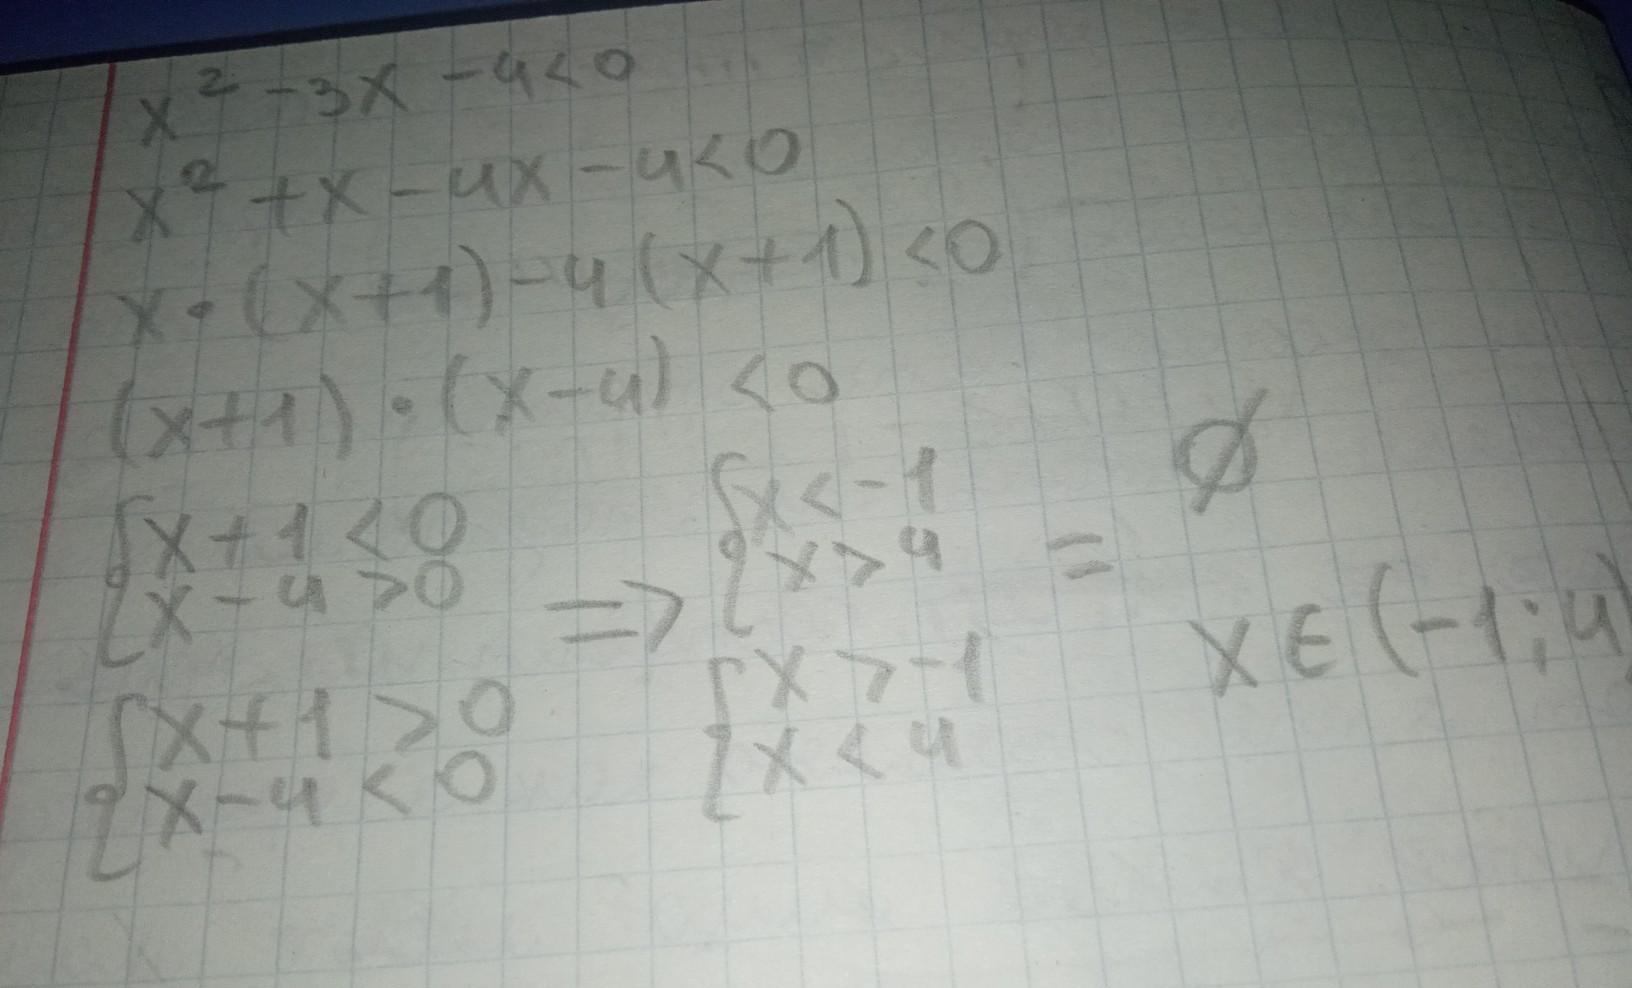 x² - 3x - 4 < 0
x² + x - 4x - 4 < 0
x · (x+1) - 4(x+1) < 0
(x+1) · (x-4) < 0
{x+1 < 0
{x-4 > 0
{x+1 > 0
{x-4 < 0
=>
{x < -1
{x > 4
{x > -1
{x < 4
=
∅
x ∈ (-1; 4)